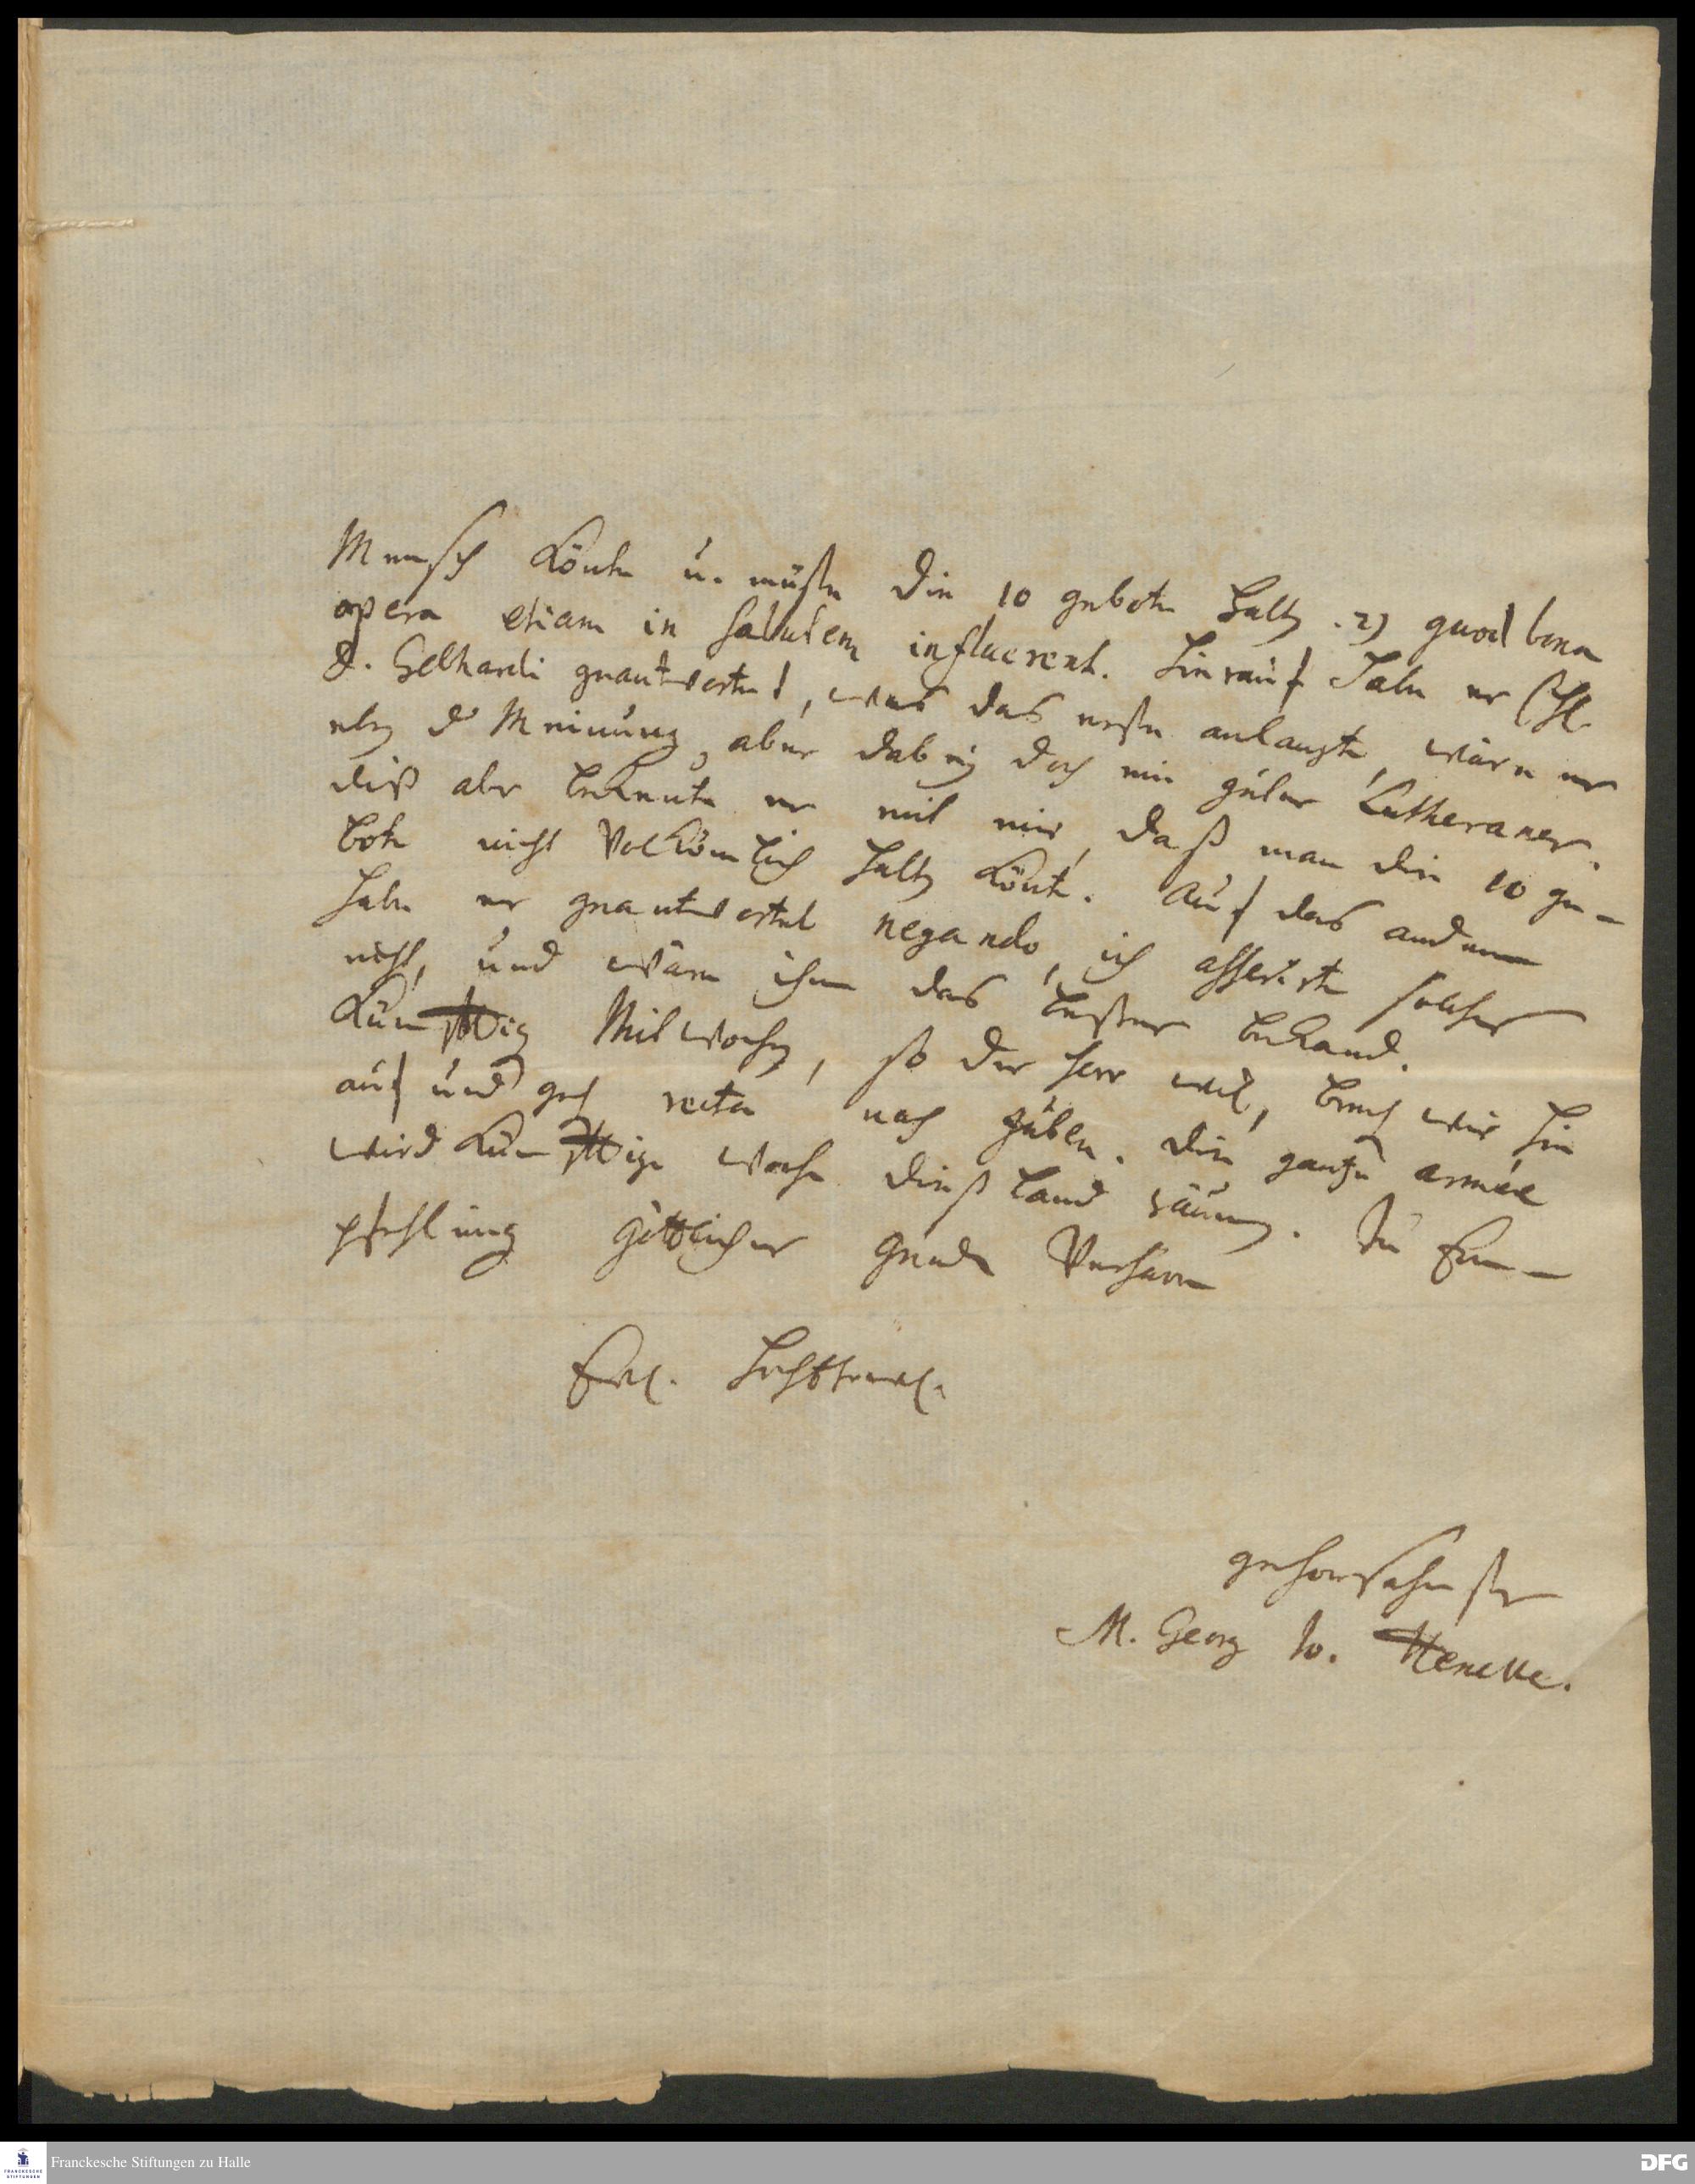 Mensch könte u. müste die 10 gebote halten. 2) quod bona
opera etiam in salutem influerent. Hierauf habe er H.
D. Gebhardi geantwortet, was das erste anlangte, wäre er
eben der Meinung, aber dabey doch ein guter Lutheraner.
diß aber bekente er mit mir, daß man die 10 ge-
bote nicht Volkömlich halten könte. Auf das andere
habe er geantwortet negando, ich asserirte solches
nicht, und wäre ihm das beßer bekand.
Künfftig Mitwochen, so der Herr wil, brechen wir hie
auf und gehen recta nach Guben. die gantze armée
wird künfftige woche dieß land räumen. Zu Em-
pfehlung göttlicher gnade Verharre
Ew. HochEhrw.
gehorsahmster
M. Georg Jo. Hencke.
Franckesche Stiftungen zu Halle
FRANCKESCHE STIFTUNGEN
DFG